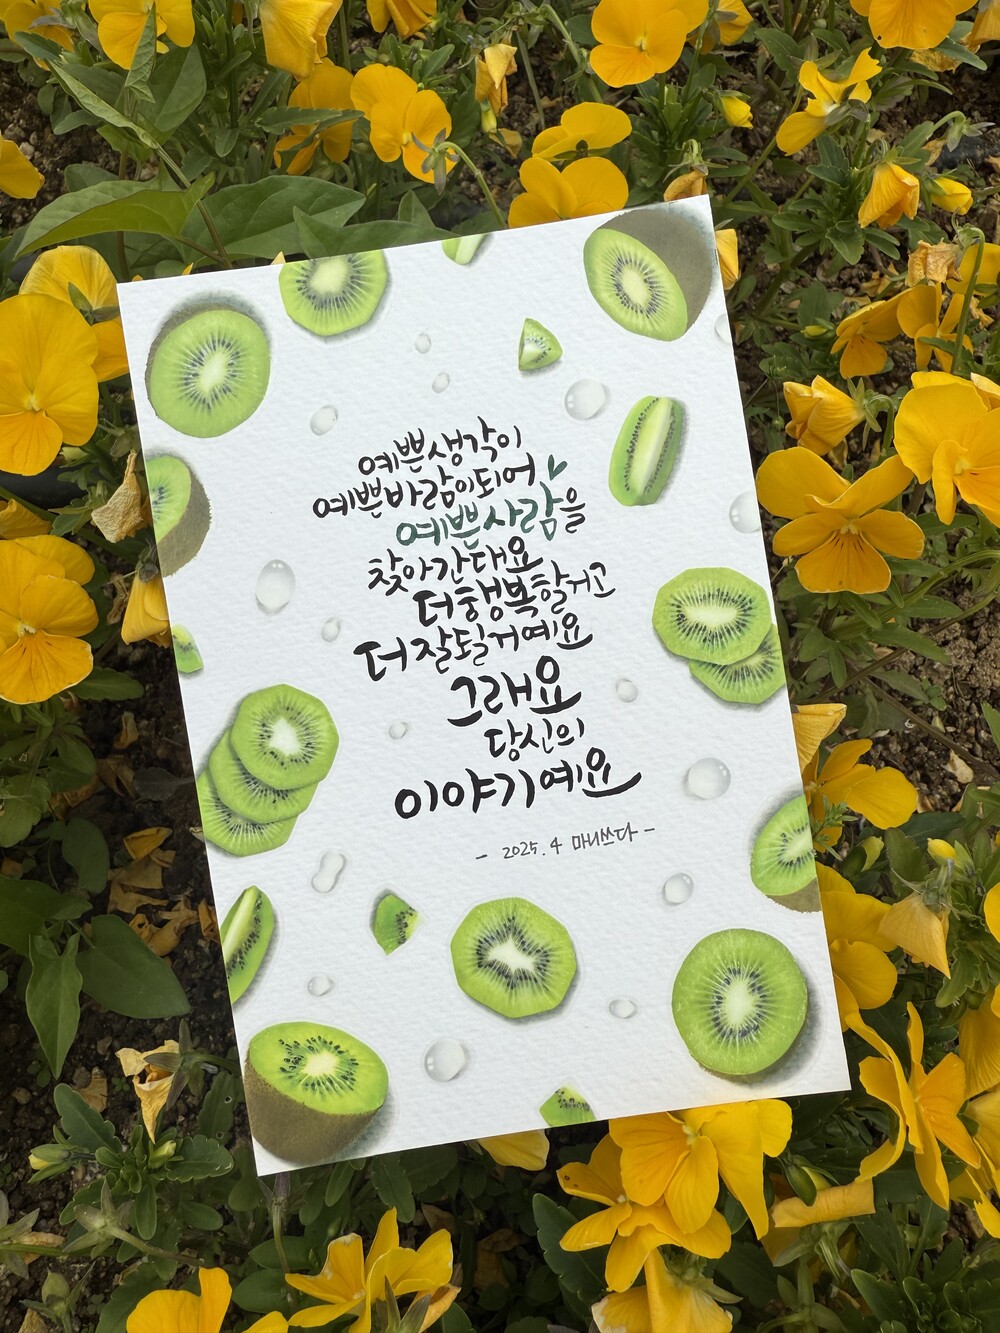 예쁜 생각이
예쁜 바람이 되어
예쁜 사람을
찾아간대요
더 행복할거고
더 잘될거예요
그래요
당신의
이야기예요
- 2025. 4 마니쓰다 -